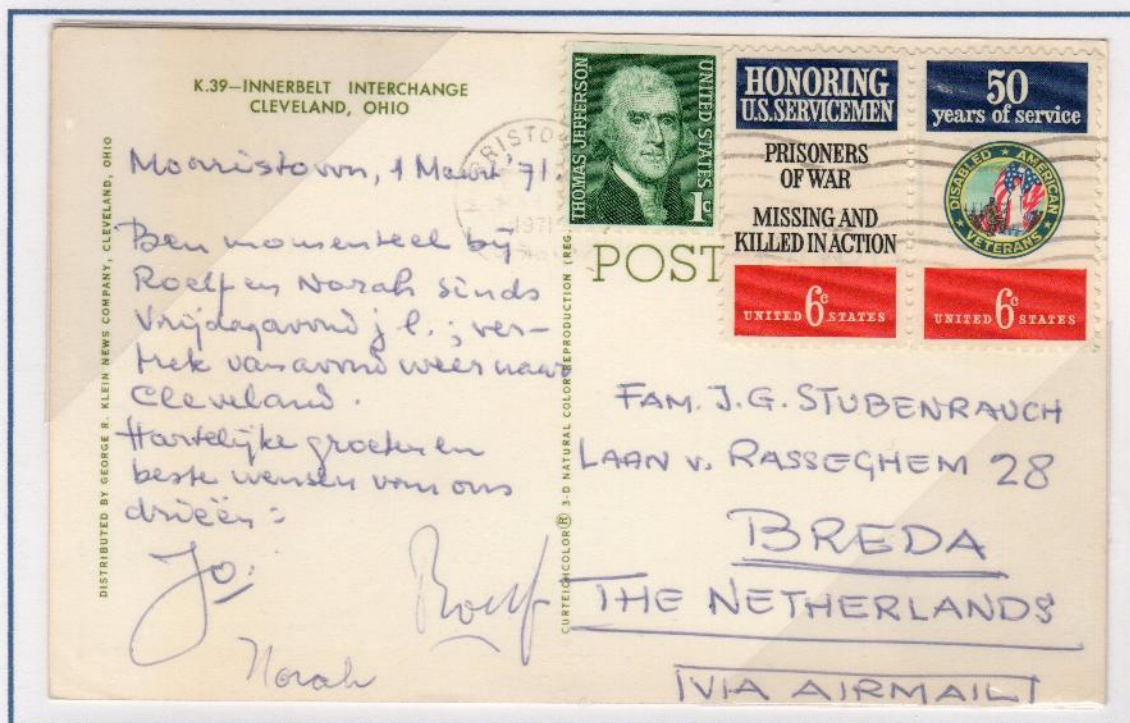 K.39—INNERBELT INTERCHANGE
CLEVELAND, OHIO
DISTRIBUTED BY GEORGE R. KLEIN NEWS COMPANY, CLEVELAND, OHIO
Morristown, 1 Maart '71.
Ben momenteel bij
Roelf en Norah sinds
Vrijdagavond j.l.; ver-
trek vanavond weer naar
Cleveland.
Hartelijke groeten en
beste wensen van ons
drieën:
Jo.
Roelf
Norah
CURTEICHCOLOR® 3-D NATURAL COLOR REPRODUCTION (REG.
1971
THOMAS JEFFERSON
UNITED STATES
1c
HONORING
U.S. SERVICEMEN
PRISONERS
OF WAR
MISSING AND
KILLED IN ACTION
UNITED 6c STATES
50
years of service
DISABLED ★ AMERICAN
VETERANS
UNITED 6c STATES
POST
FAM. J.G. STUBENRAUCH
LAAN v. RASSEGHEM 28
BREDA
THE NETHERLANDS
VIA AIRMAIL